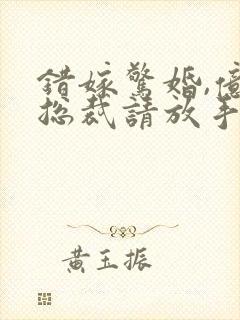 錯嫁驚婚,億
總裁請放手
黃玉振